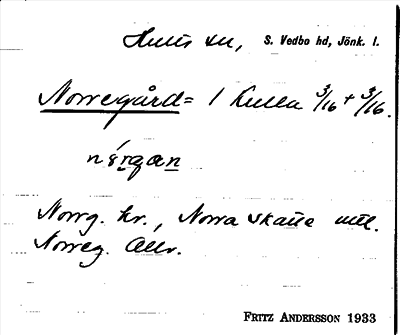 Hults sn, S. Vedbo hd, Jönk. l.
Norregård = 1 Kulla 3/16 + 3/16.
nórgan
Norrg. kr., Norra Skatte utl.
Norreg. Allv.
FRITZ ANDERSSON 1933